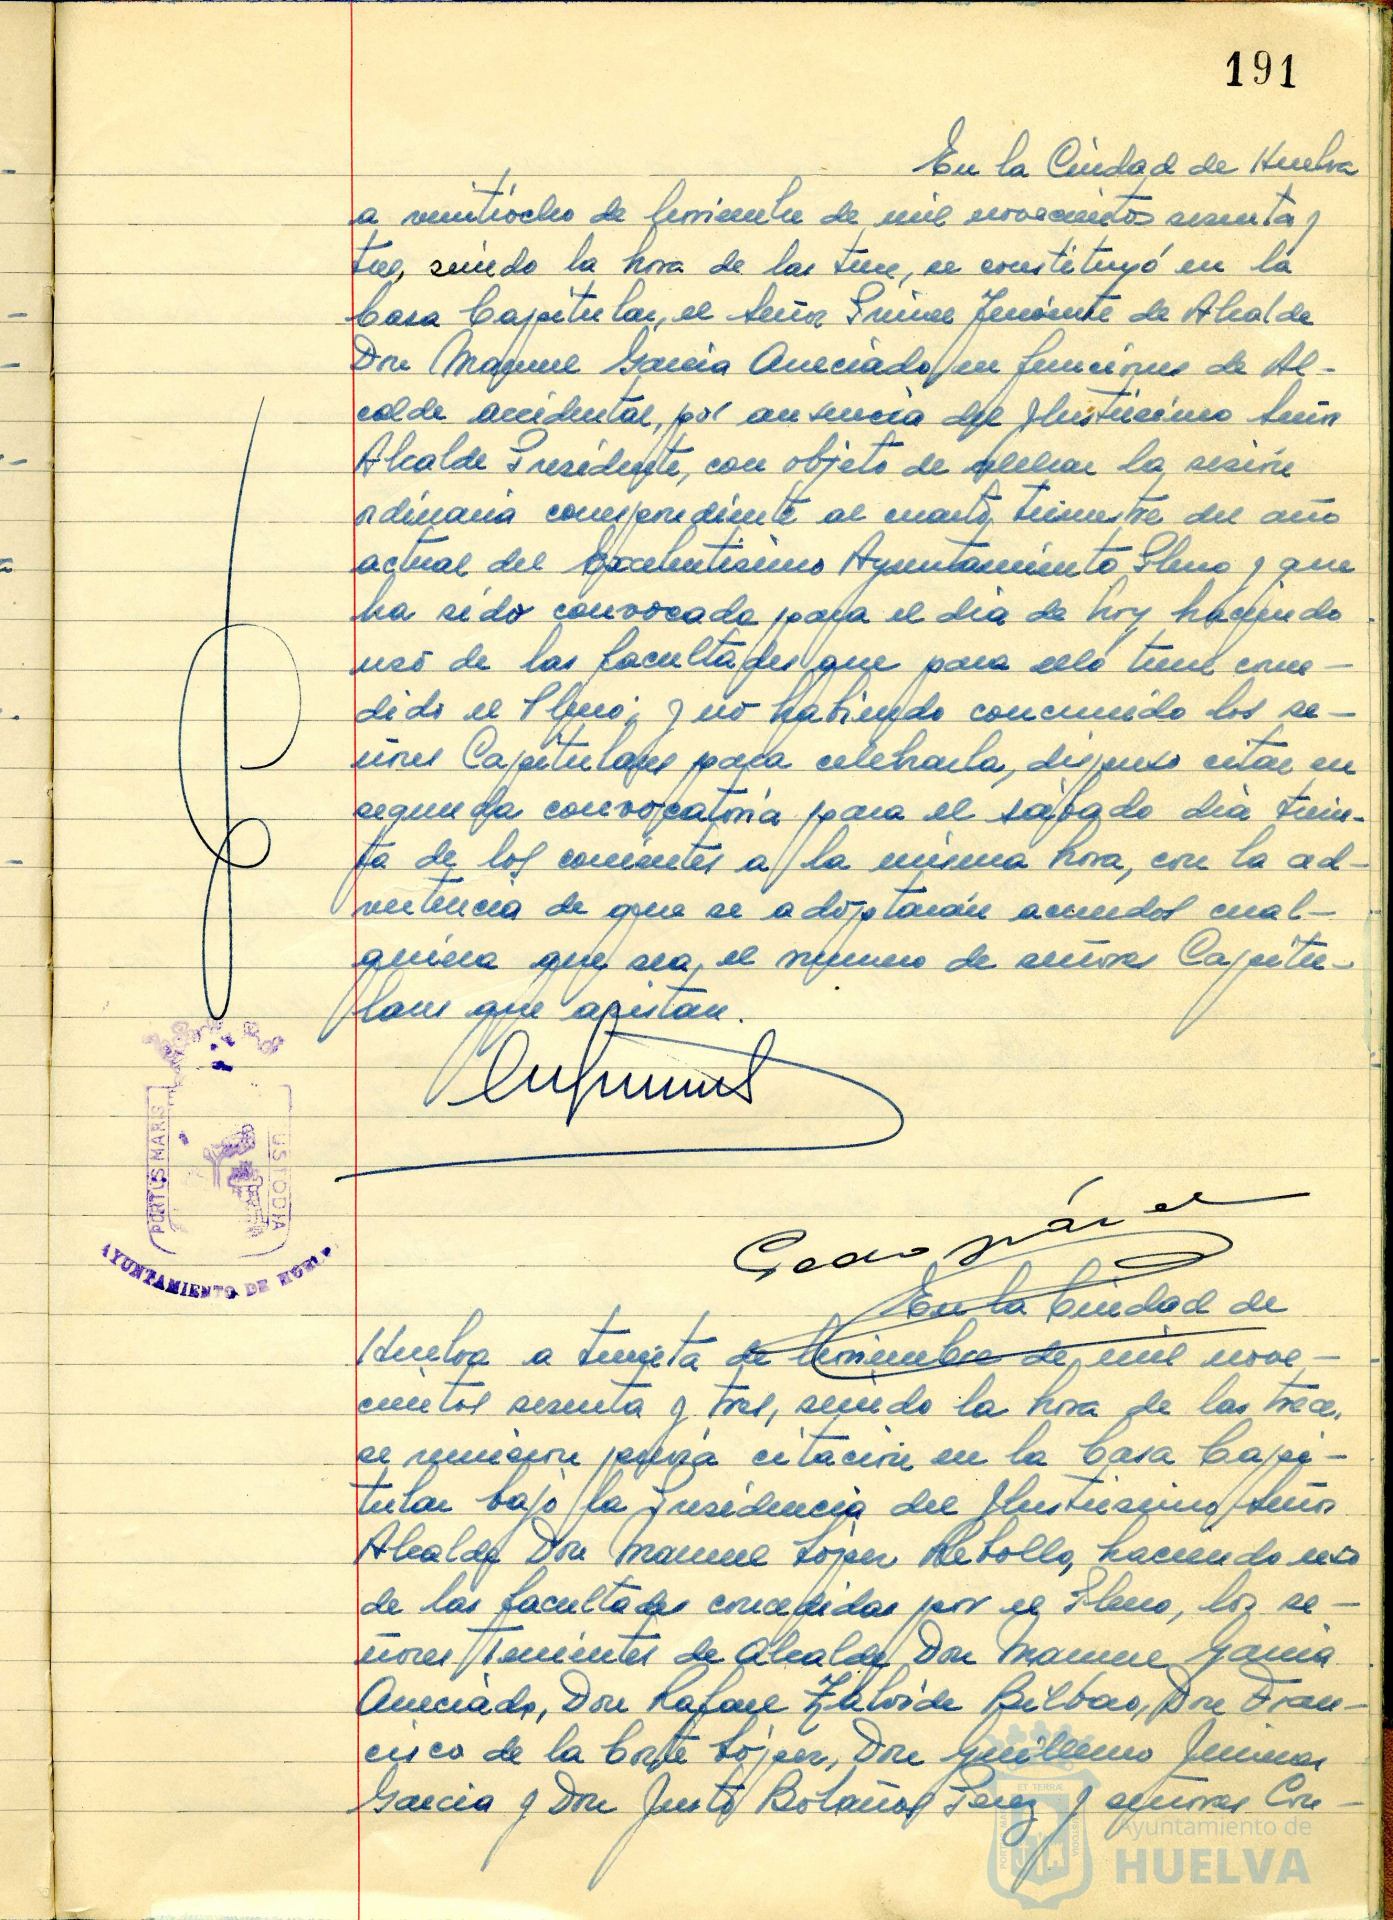 191
En la Ciudad de Huelva
a veintiocho de Noviembre de mil novecientos sesenta y
tres, siendo la hora de las trece, se constituyó en la
Casa Capitular, el Señor Primer Teniente de Alcalde
Don Manuel García Aneciado, en funciones de Al-
calde accidental, por ausencia del Ilustrísimo Señor
Alcalde Presidente, con objeto de celebrar la sesión
ordinaria correspondiente al cuarto trimestre del año
actual del Excelentísimo Ayuntamiento Pleno y que
ha sido convocada para el día de hoy haciendo
uso de las facultades que para ello tiene conce-
dido el Pleno; y no habiendo concurrido los se-
ñores Capitulares para celebrarla, dispuso citar en
segunda convocatoria para el sábado día trein-
ta de los corrientes a la misma hora, con la ad-
vertencia de que se adoptarán acuerdos cual-
quiera que sea, el número de señores Capitu-
lares que asistan.
PORTUS MARIS
USTODIA
AYUNTAMIENTO DE HUELVA
En la Ciudad de
Huelva a treinta de Noviembre de mil nove-
cientos sesenta y tres, siendo la hora de las trece,
se reunieron previa citación en la Casa Capi-
tular bajo la Presidencia del Ilustrísimo Señor
Alcalde Don Manuel López Rebollo, haciendo uso
de las facultades concedidas por el Pleno, los se-
ñores Tenientes de Alcalde Don Manuel García
Aneciado, Don Rafael Zalvide Bilbao, Don Fran-
cisco de la Corte López, Don Guillermo Jimenez
García y Don Justo Bolaños Perez y señores Con-
Ayuntamiento de
HUELVA